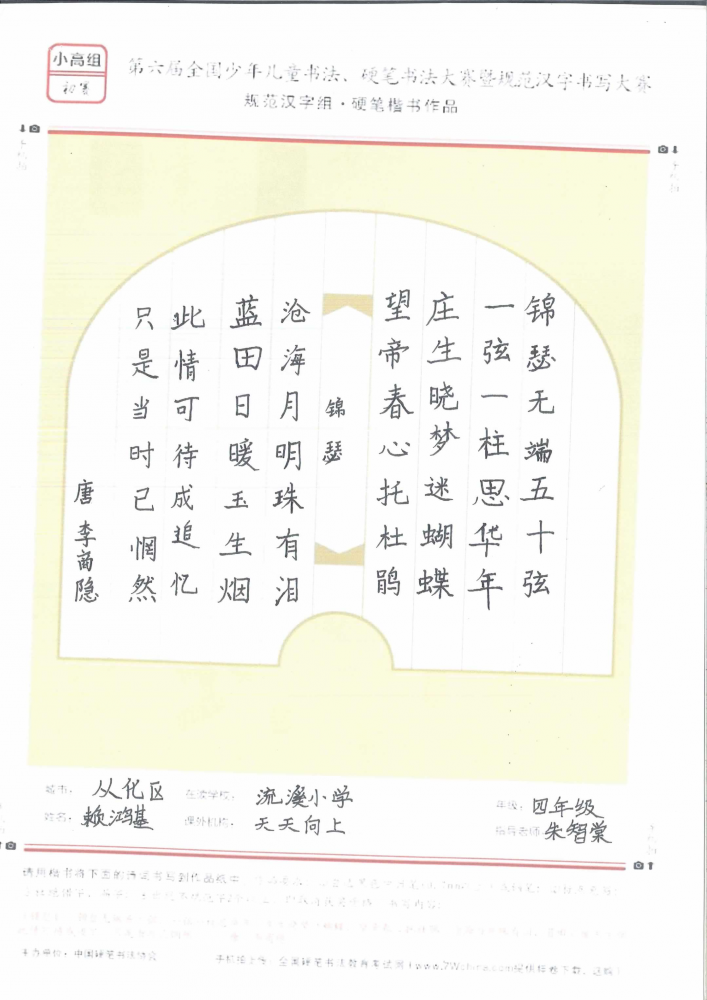 小高组
初赛
第六届全国少年儿童书法、硬笔书法大赛暨规范汉字书写大赛
规范汉字组·硬笔楷书作品
锦瑟无端五十弦
一弦一柱思华年
庄生晓梦迷蝴蝶
望帝春心托杜鹃
锦瑟
沧海月明珠有泪
蓝田日暖玉生烟
此情可待成追忆
只是当时已惘然
唐李商隐
城市：从化区
在读学校：流溪小学
年级：四年级
姓名：赖鸿基
课外机构：天天向上
指导老师：朱智棠
请用楷书将下面的诗词书写到作品纸中
主办单位：中国硬笔书法协会